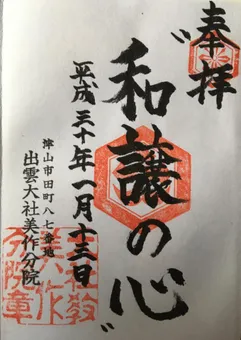 奉拝
和譲の心
平成三十年一月十三日
津山市田町八七番地
出雲大社美作分院